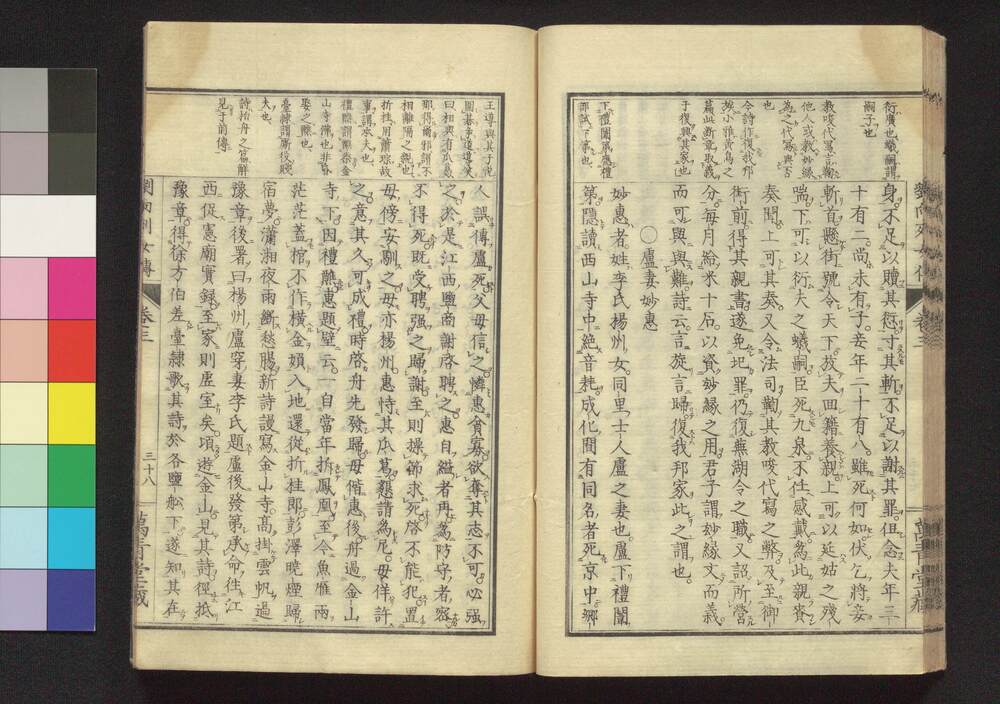 衍廣也蟻嗣謂
嗣子也
教唆代寫言謂
他人或教妙緣
為之代寫與否
也
令詩作復我邦
族小雅黃鳥之
篇此斷章取義
于復興其家也
下禮闈第應禮
部試下第也
身不足以贖其愆寸其斬不足以謝其罪但念夫年三
十有二尚未有子妾年二十有八雖死何如伏乞將妾
斬首懸街號令天下放夫回籍養親上可以延姑之殘
喘下可以衍夫之蟻嗣臣死九泉不任感戴為此親賷
奏聞上可其奏又令法司鞫其教唆代寫之弊及至御
街前得其親書遂免地罪仍復蕪湖令之職又詔所營
分每月給米十石以資妙緣之用君子謂妙緣文而義
而可與與難詩云言旋言歸復我邦家此之謂也
○盧妻妙惠
妙惠者姓李氏揚州女同里士人盧之妻也盧下禮闈
第隱讀西山寺中絕音耗成化間有同名者死京中鄉
王導與其子悅
圍碁爭道導笑
曰相與有瓜葛
那得爾邪謂不
相離隔之親也
折桂用蕭琮故
事謂亦夫也
禮醮謂醮祭金
山寺佛也非昏
娶之醮也
臺隸謂厮役賤
夫也
詩栢舟之篇解
見于前傳
人誤傳盧死父母信之憐惠貧寡欲奪其志不可必强
之於是江西鹽商謝啓聘之惠自縊者再為防守者密
不得死既受聘强之歸謝至則操篩求死啓不能犯置
母傍安勵之母亦楊州惠恃其瓜葛懇請為尼母佯許
之意其久可成禮時啓舟先發歸母偕惠後舟過金山
寺下因禮醮惠題壁云一自當年拆鳳凰至今魚雁兩
茫茫蓋棺不作橫金婦入地還從折桂郎彭澤曉煙歸
宿夢瀟湘夜雨斷愁腸新詩謾寫金山寺高掛雲帆過
豫章後署曰楊州盧穿妻李氏題盧後發第承命徃江
西促憲廟實録至家則虛室矣頃遊金山見其詩徑抵
豫章得徐方伯差臺隸歌其詩於各鹽舩下遂知其在
劉向列女傳
卷三
三十八
萬青堂藏